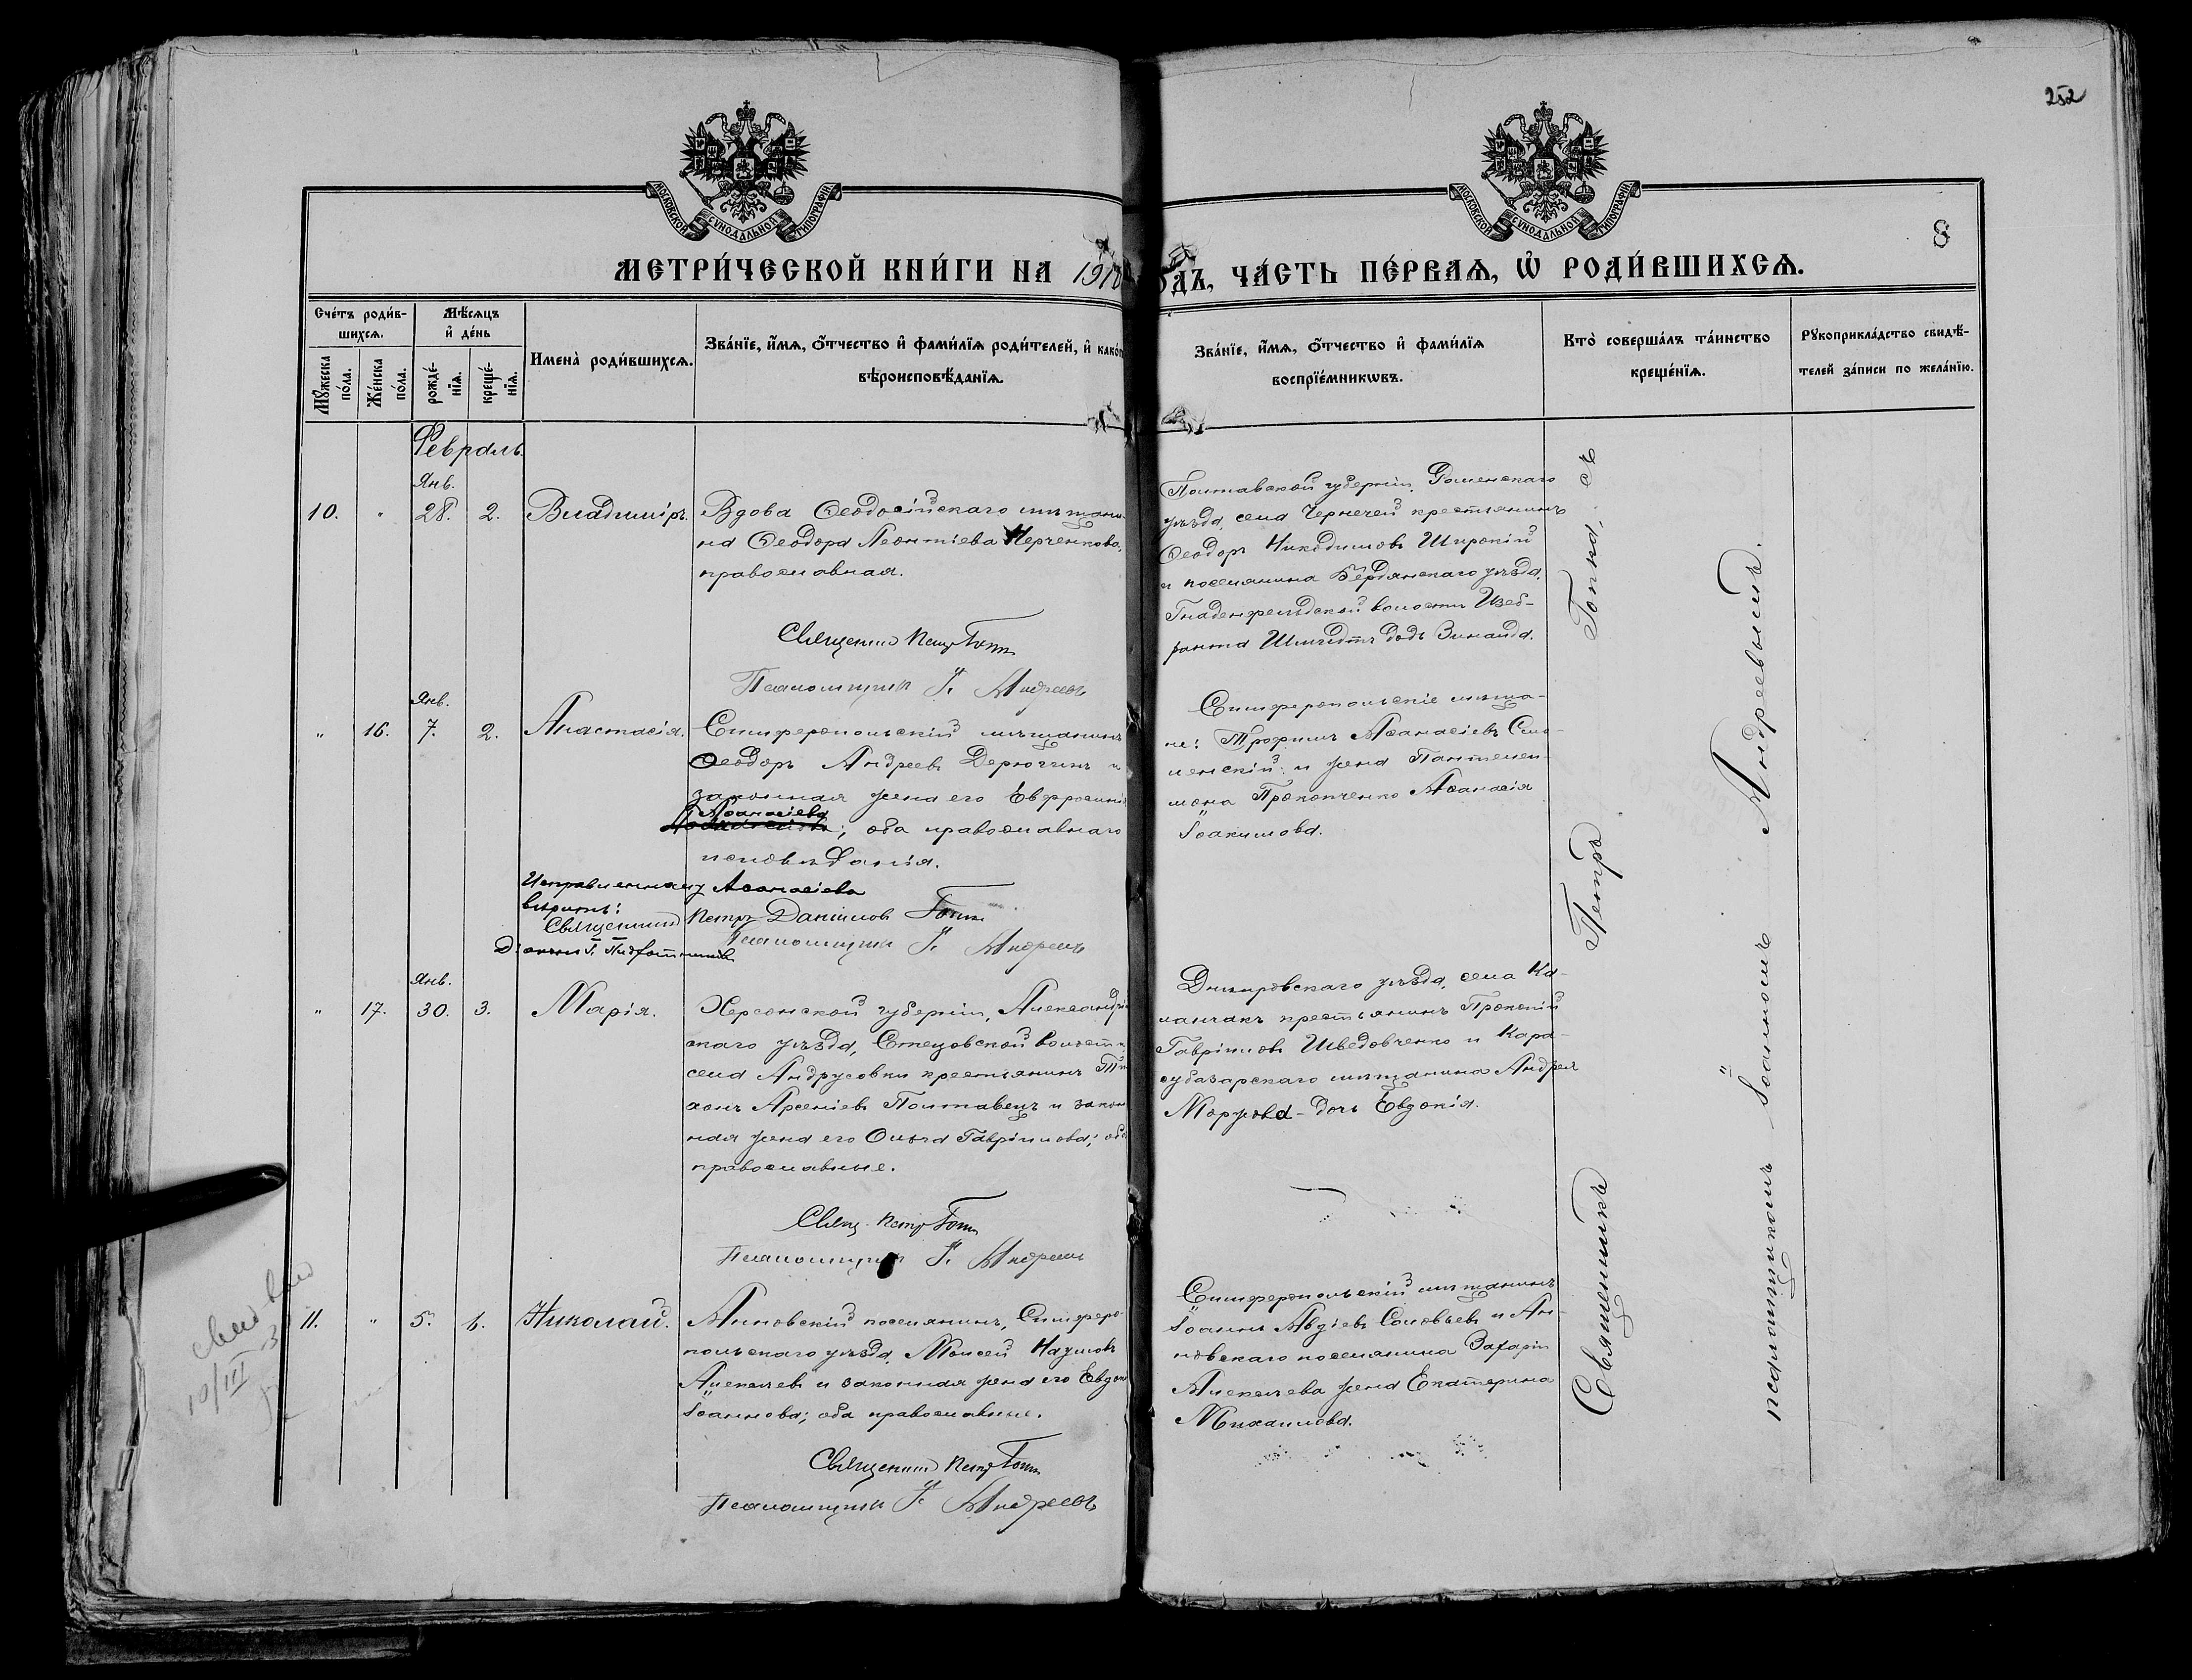 252
МОСКОВСКОЙ СѴНОДАЛЬНОЙ ТИПОГРАФІИ
МОСКОВСКОЙ СѴНОДАЛЬНОЙ ТИПОГРАФІИ
8
МЕТРИ́ЧЕСКОЙ КНИ́ГИ НА 1918
ОДЪ, ЧА́СТЬ ПЕ́РВАѦ, Ѡ РОДИ́ВШИХСѦ.
Сче́тъ роди́в-
шихсѧ.
Мꙋжеска по́ла.
Же́нска по́ла.
Мѣсѧцъ
и҆ де́нь
рожде́-
нїѧ.
креще́-
нїѧ.
И҆мена̀ роди́вшихсѧ.
Зва́нїе, и҆́мѧ, ѻ҆́тчество и҆ фами́лїѧ роди́телей, и҆ како́
вѣроисповѣ́данїѧ.
Зва́нїе, и҆́мѧ, ѻ҆́тчество и҆ фами́лїѧ
воспрїе́мникѡвъ.
Кто̀ соверша́лъ та́инство
креще́нїѧ.
Рꙋкоприкла́дство свидѣ́-
телей за́писи по жела́нїю.
Февраль.
Янв.
10. " 28. 2. Владиміръ.
Вдова Ѳеодосійскаго мѣщани-
на Ѳеодора Леонтіева Нерченкова,
православная.
Священник Петр Гопп
Псаломщик І. Андреевъ
Полтавской губерніи, Роменскаго
уѣзда, села Чернечей крестьянинъ
Ѳеодоръ Никодимовъ Широкій
и поселянина Бердянскаго уѣзда,
Гнаденфельдской волости
Шмидтъ дочь Зинаида.
Янв.
" 16. 7. 2. Анастасія.
Симферопольскій мѣщанинъ
Ѳеодоръ Андреевъ Дерюгинъ и
законная жена его Евфросинія
Аѳанасіева
; оба православнаго
исповѣданія.
Исправленному Аѳанасіева
вѣрить:
Священник Петръ Даніилов Гопп
Псаломщик І. Андреевъ
Симферопольскіе мѣща-
не: Трофимъ Аѳанасіевъ Смо-
ленскій и жена Пантелей-
мона Прокопченко Аѳанасія
Іоакимова.
Янв.
" 17. 30. 3. Марія.
Херсонской губерніи, Александрій
скаго уѣзда, Стецовской волости,
села Андрусовки крестьянинъ Ти
хонъ Арсеніевъ Полтавецъ и закон
ная жена его Ольга Гавріилова; оба
православные.
Свящ. Петр Гопп
Псаломщик І. Андреевъ
Днѣпровскаго уѣзда, села Ка-
ланчакъ крестьянинъ Прокопій
Гавріиловъ Шведовченко и Кара-
субазарскаго мѣщанина Андрея
дочь Евдокія.
11. " 5. 6. Николай.
Анновскій поселянинъ, Симферо-
польскаго уѣзда, Моисей Наумовъ
Алексѣевъ и законная жена его Евдок
Іоаннова; оба православные.
Священник Петр Гопп
Псаломщик І. Андреевъ
Симферопольскій мѣщанинъ
Іоаннъ Авдіевъ Соловьевъ и Ан-
новскаго поселянина Захаріи
Алексѣева жена Екатерина
Михаилова.
Священникъ Петръ Гоппа, съ
псаломщикомъ Іоанномъ Андреевымъ.
10/III